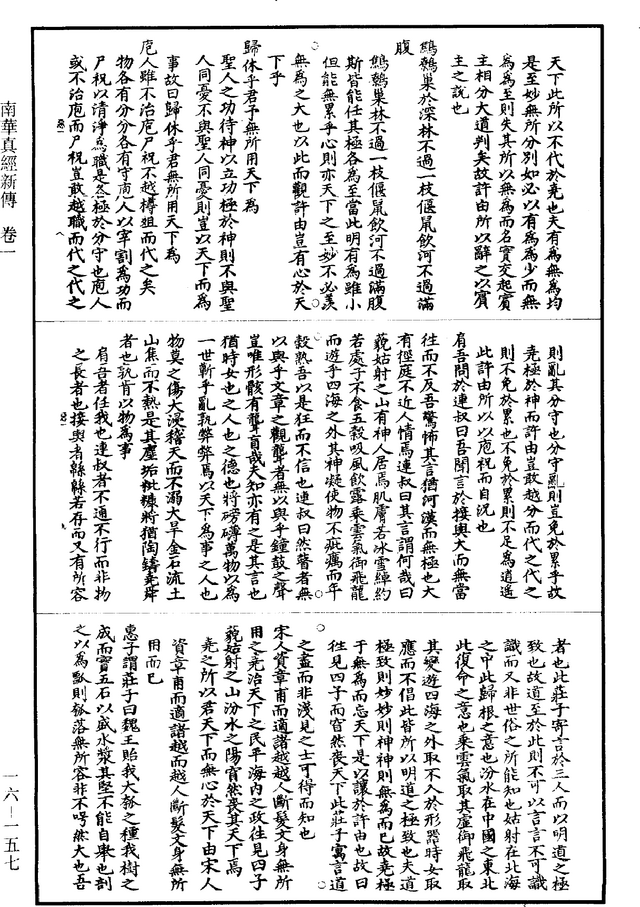 南華真經新傳 卷一
天下此所以不代於堯也夫有為無為均
是至妙無所分別如必以有為為少而無
為為至則失其所以無為而名實交起賓
主相分大道判矣故許由所以辭之以賓
主之說也
鷦鷯巢於深林不過一枝偃鼠飲河不過滿
腹
鷦鷯巢林不過一枝偃鼠飲河不過滿腹
斯皆能任其極各為至當此明有為雖小
但能無累乎心則亦天下之至妙不必羨
無為之大也以此而觀許由豈有心於天
下乎
歸休乎君予無所用天下為
聖人之功待神以立功極於神則不與聖
人同憂不與聖人同憂則豈以天下而為
事故曰歸休乎君無所用天下為
庖人雖不治庖尸祝不越樽俎而代之矣
物各有分分各有守庖人以宰割為功而
尸祝以清淨為職是各極於分守也庖人
或不治庖而尸祝豈敢越職而代之代之
則亂其分守也分守亂則豈免於累乎故
堯極於神而許由豈敢越分而代之代之
則不免於累也不免於累則不足為逍遙
此許由所以以庖祝而自況也
肩吾問於連叔曰吾聞言於接輿大而無當
往而不反吾驚怖其言猶河漢而無極也大
有徑庭不近人情焉連叔曰其言謂何哉曰
藐姑射之山有神人居焉肌膚若冰雪綽約
若處子不食五穀吸風飲露乘雲氣御飛龍
而遊乎四海之外其神凝使物不疵癘而年
穀熟吾以是狂而不信也連叔曰然瞽者無
以與乎文章之觀聾者無以與乎鐘鼓之聲
豈唯形骸有聾盲哉夫知亦有之是其言也
猶時女也之人也之德也將磅礴萬物以為
一世蘄乎亂孰弊弊焉以天下為事之人也
物莫之傷大浸稽天而不溺大旱金石流土
山焦而不熱是其塵垢粃糠將猶陶鑄堯舜
者也孰肯以物為事
肩吾者任我也連叔者不通不行而非物
之長者也接輿者綿綿若存而又有所容
者也此莊子寄言於三人而以明道之極
致也故道至於此則不可以言言不可識
識而又非世俗之所能知也姑射在北海
之中此歸根之意也汾水在中國之東北
此復命之意也乘雲氣取其虛御飛龍取
其變遊四海之外取不入於形器時女取
應而不倡此皆所以明道之極致也夫道
極致則妙妙則神神則無為而已故堯極
于無為而忘天下是以讓於許由也故曰
往見四子而窅然喪天下此莊子寓言道
之盡而非淺見之士可得而知也
宋人資章甫而適諸越越人斷髮文身無所
用之堯治天下之民平海內之政往見四子
藐姑射之山汾水之陽窅然喪其天下焉
堯之所以君天下而無心於天下由宋人
資章甫而適諸越而越人斷髮文身無所
用而已
惠子謂莊子曰魏王貽我大瓠之種我樹之
成而實五石以盛水漿其堅不能自舉也剖
之以為瓢則瓠落無所容非不呺然大也吾
一六—一五七